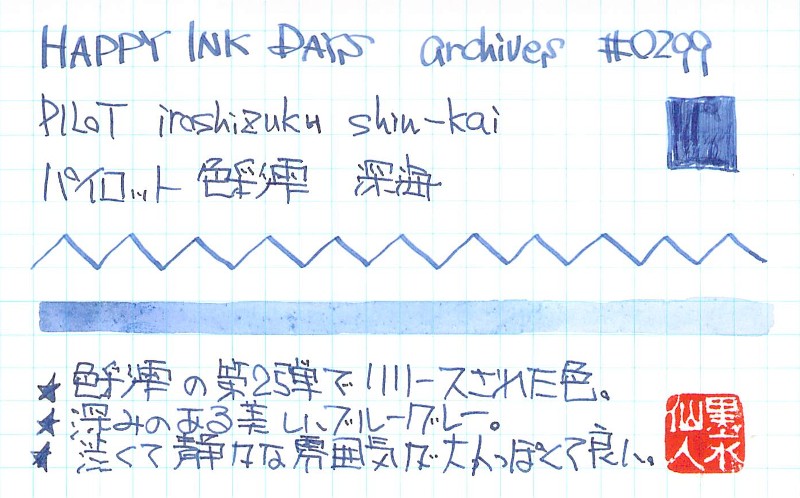 HAPPY INK DAYS archives #0299
PILOT iroshizuku shin-kai
パイロット 色彩雫 深海
★ 色彩雫の第2弾でリリースされた色。
★ 深みのある美しいブルーグレー。
★ 渋くて静かな雰囲気が大人っぽくて良い。
墨水仙人